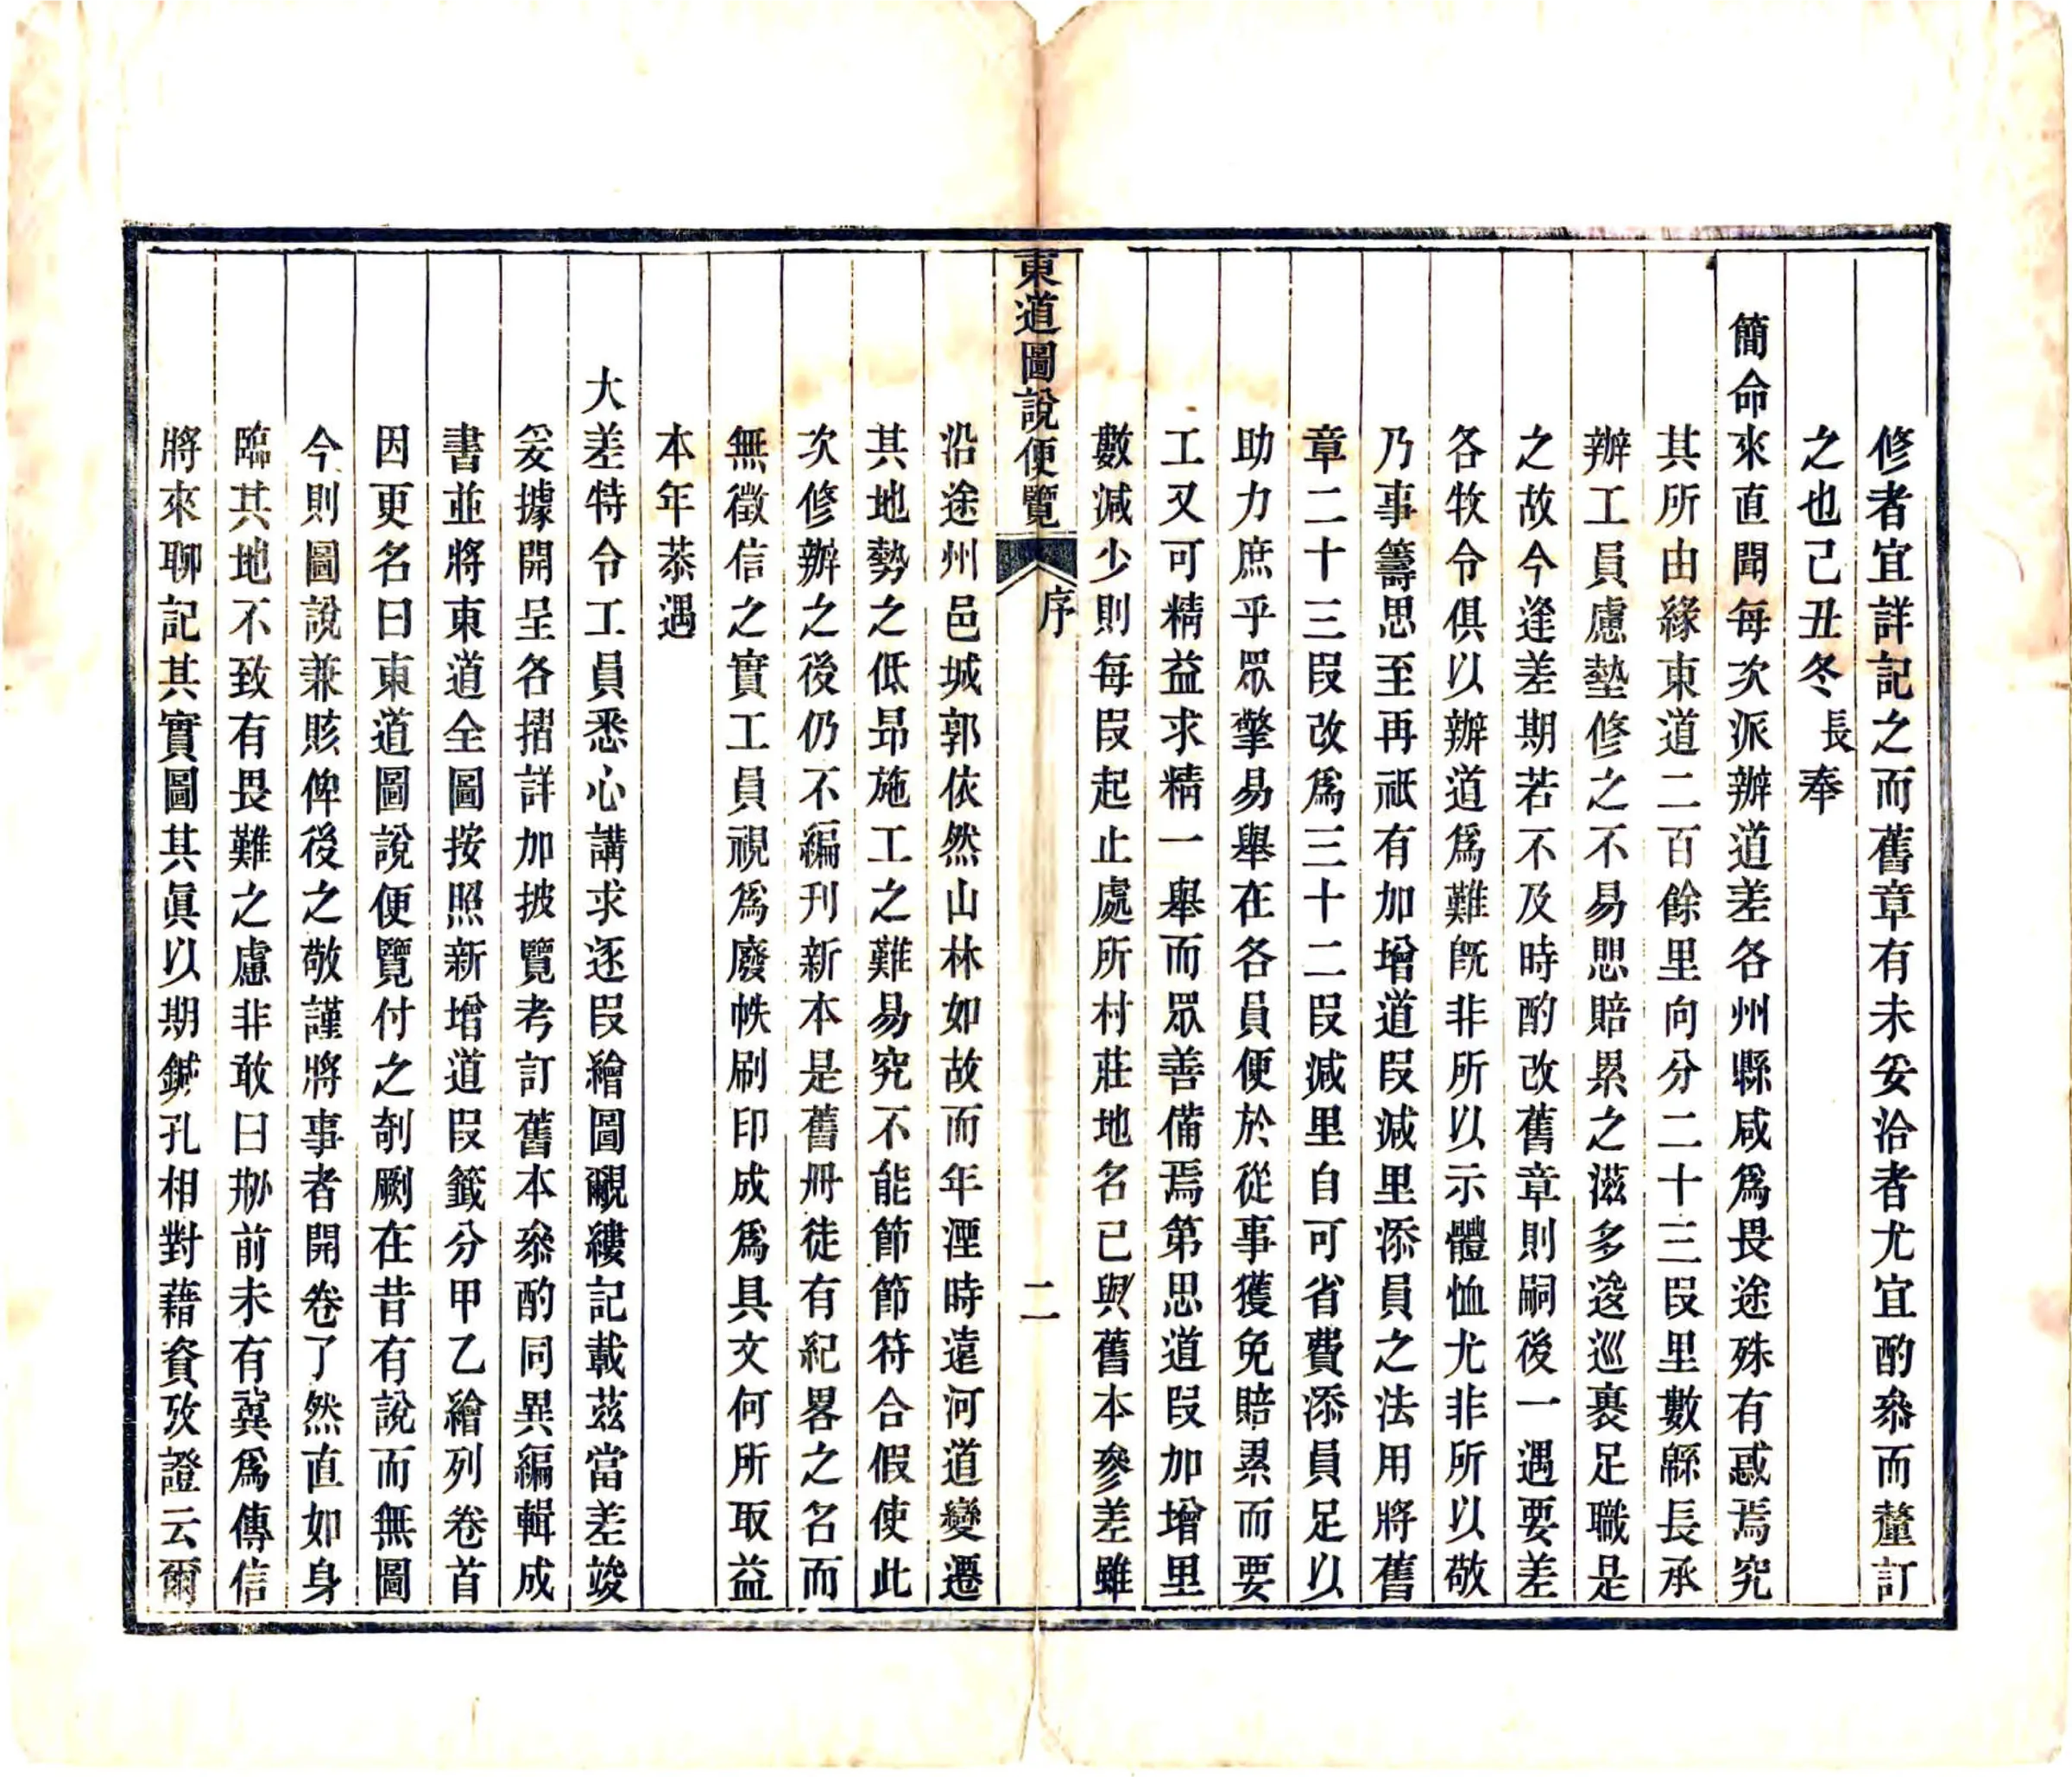 修者宜詳記之而舊章有未妥洽者尤宜酌叅而釐訂
之也己丑冬長奉
簡命來直聞每次派辦道差各州縣咸爲畏途殊有惑焉究
其所由緣東道二百餘里向分二十三叚里數緜長承
辦工員慮墊修之不易思賠累之滋多逡巡裹足職是
之故今逢差期若不及時酌改舊章則嗣後一遇要差
各牧令俱以辦道爲難旣非所以示體恤尤非所以敬
乃事籌思至再祇有加增道叚減里添員之法用將舊
章二十三叚改爲三十二叚減里自可省費添員足以
助力庶乎眾擎易舉在各員便於從事獲免賠累而要
工又可精益求精一舉而眾善備焉第思道叚加增里
數減少則每叚起止處所村莊地名已與舊本參差雖
東道圖說便覽
序
二
沿途州邑城郭依然山林如故而年湮時遠河道變遷
其地勢之低昂施工之難易究不能節節符合假使此
次修辦之後仍不編刊新本是舊冊徒有紀畧之名而
無徵信之實工員視爲廢帙刷印成爲具文何所取益
本年恭遇
大差特令工員悉心講求逐叚繪圖覼縷記載茲當差竣
妥據開呈各摺詳加披覽考訂舊本叅酌同異編輯成
書並將東道全圖按照新增道叚籤分甲乙繪列卷首
因更名曰東道圖說便覽付之剞劂在昔有說而無圖
今則圖說兼賅俾後之敬謹將事者開卷了然直如身
臨其地不致有畏難之慮非敢曰剏前未有冀爲傳信
將來聊記其實圖其眞以期鍼孔相對藉資攷證云爾